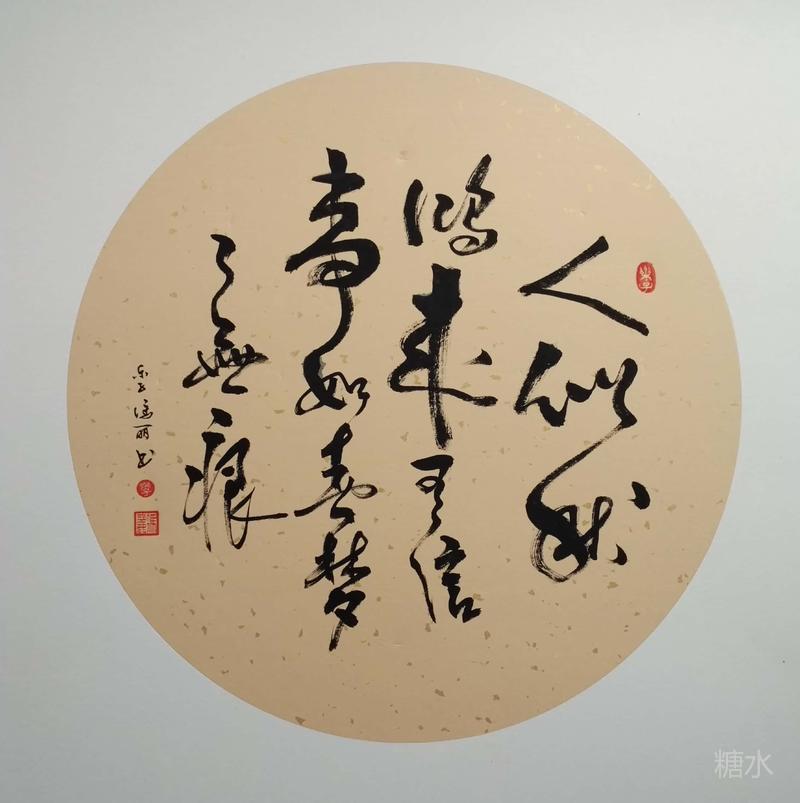 人似秋
鸿来有信
事如春梦
了無痕
丽书
糖水